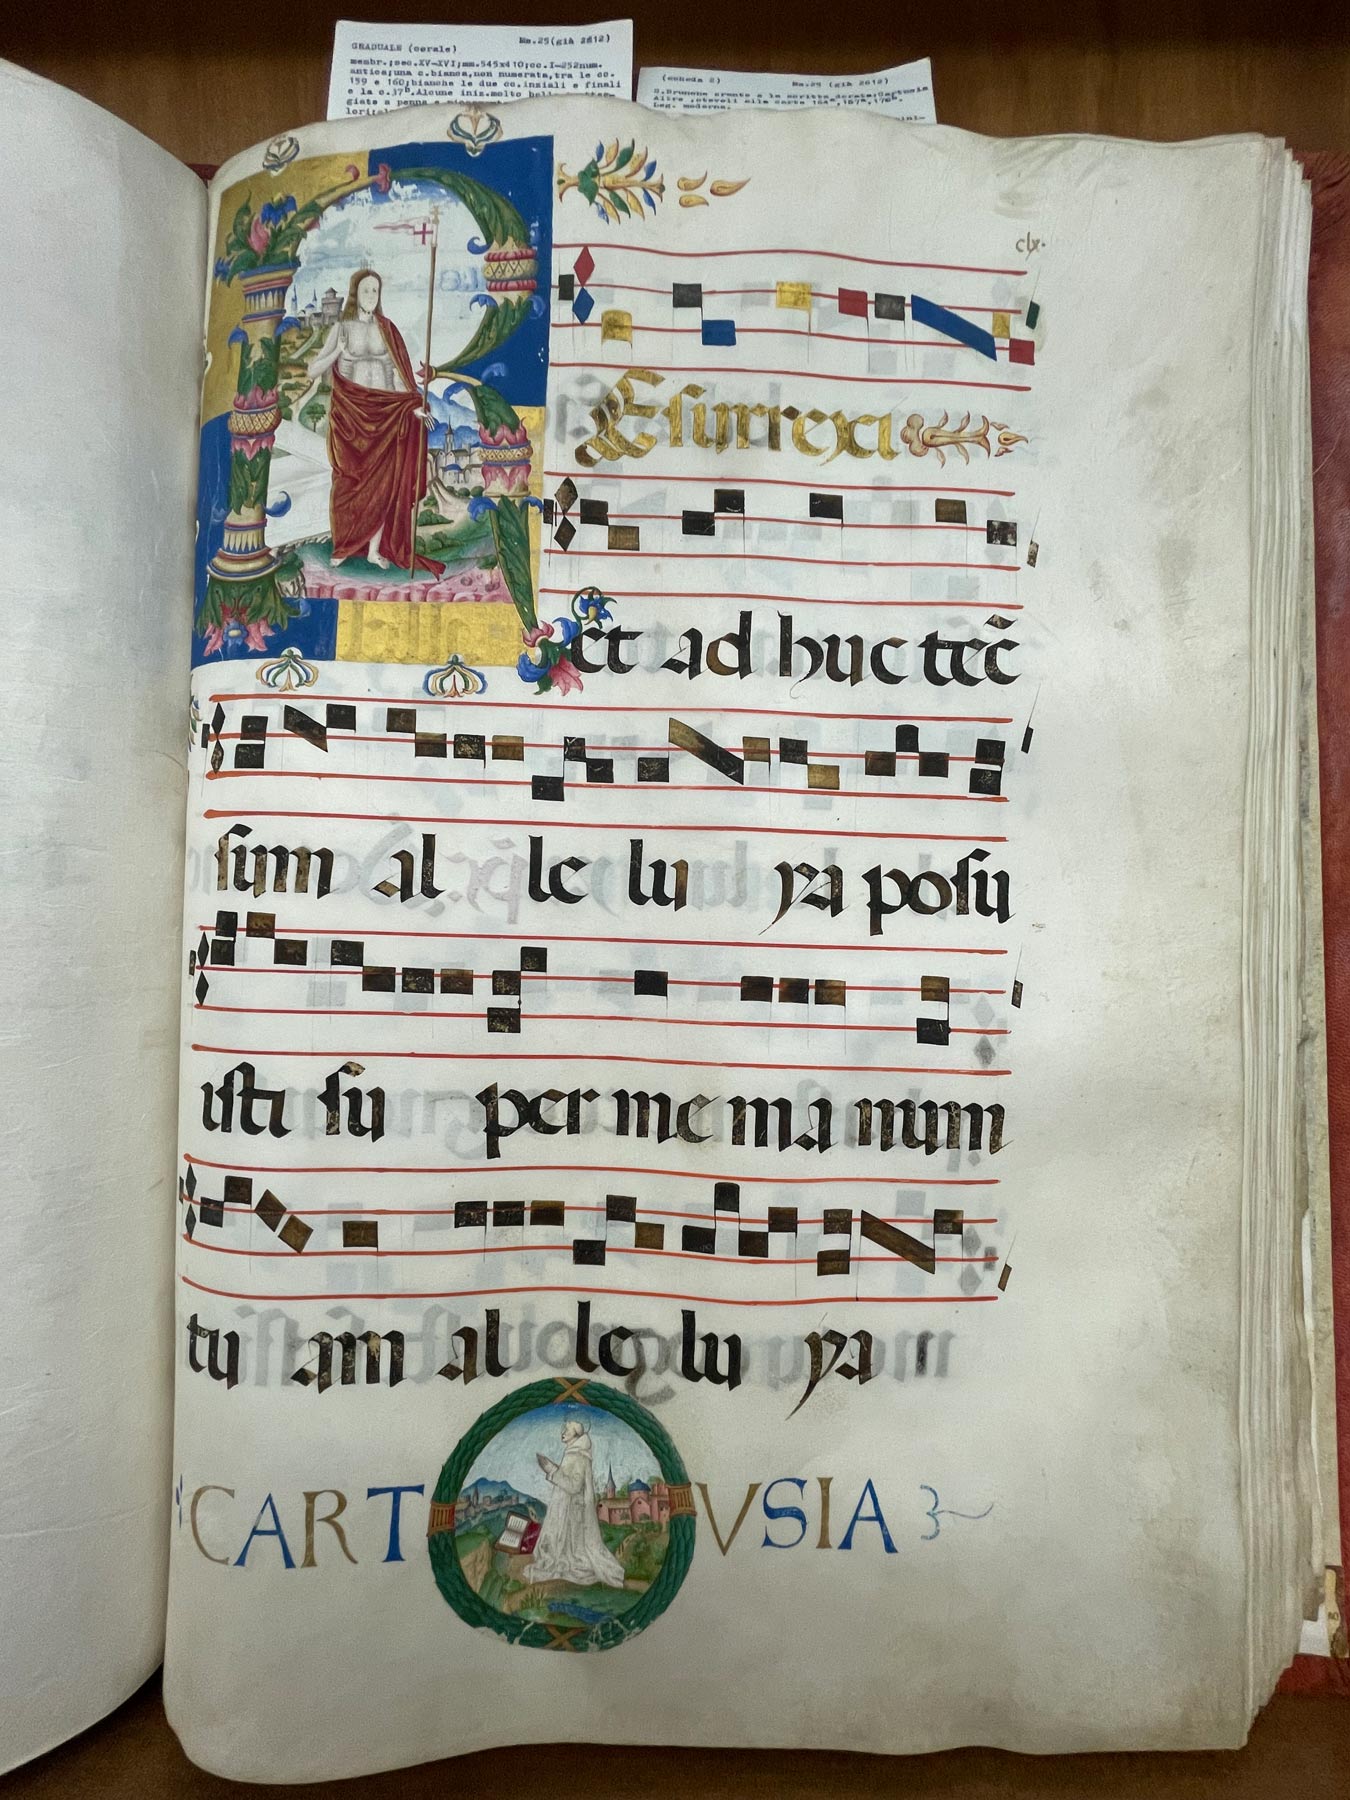 GRADUALE (corale) Ms.25(già 2612)
membr.;sec.XV-XVI;mm.545x410;cc.I-252num.
antica;una c.bianca,non numerata,tra le cc.
159 e 160;bianche le due cc.inziali e finali
e la c.37b.Alcune iniz.molto
(scheda 2) Ms.25 (già 2612)
S.Brunone orante e la scritta dorata:Cartusia
Altre ,notevoli alle carte 164a,167a,176b.
Leg. moderna.
clx.
REsurrexi
et ad huc tec̃
sum al le lu ya posu
isti su per me ma num
tu am al le lu ya
CARTVSIA